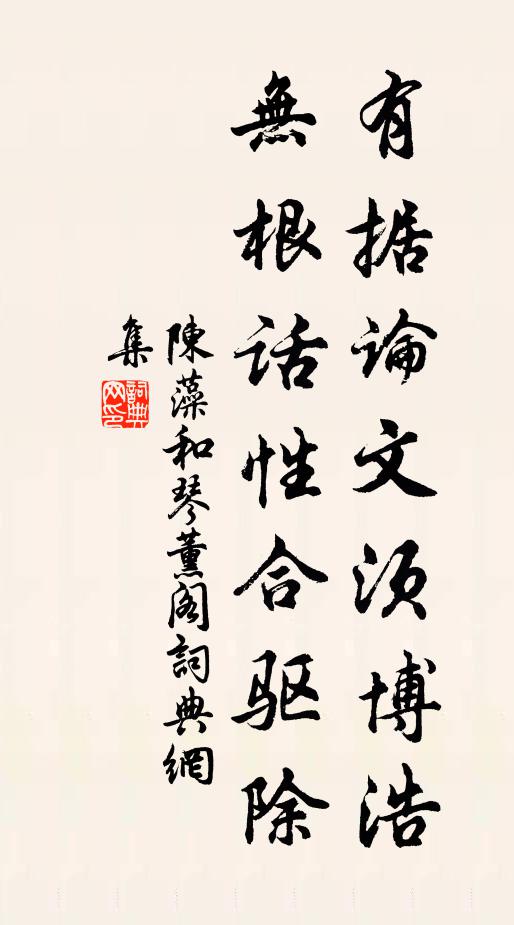 有据论文须博浩
無根话性合驱除
陳藻和琴薰阁詞典網
集
詞典網印